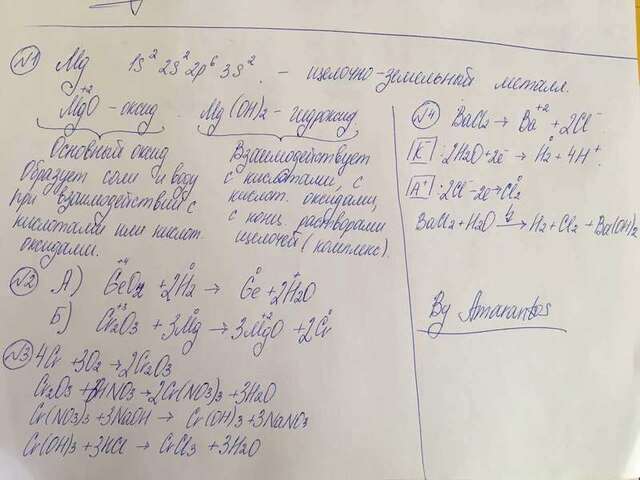 №1 Mg 1s² 2s² 2p⁶ 3s². – щелочно-земельный металл.
+2
MgO – оксид Mg(OH)₂ – гидроксид
Основный оксид
Образует соли и воду
при взаимодействии с
кислотами или кислот.
оксидами.
Взаимодействует
с кислотами, с
кислот. оксидами,
с конц. растворами
щелочей (комплекс).
№2 А) GeO₂ + 2H₂ → Ge + 2H₂O
Б) Cr₂O₃ + 3Mg → 3MgO + 2Cr
№3 4Cr + 3O₂ → 2Cr₂O₃
Cr₂O₃ + HNO₃ → 2Cr(NO₃)₃ + 3H₂O
Cr(NO₃)₃ + 3NaOH → Cr(OH)₃ + 3NaNO₃
Cr(OH)₃ + 3HCl → CrCl₃ + 3H₂O
№4 BaCl₂ → Ba⁺² + 2Cl⁻
K⁻: 2H₂O + 2e⁻ → H₂ + 4H⁺
A⁺: 2Cl⁻ - 2e → Cl₂
BaCl₂ + H₂O → H₂ + Cl₂ + Ba(OH)₂
By Amarantos